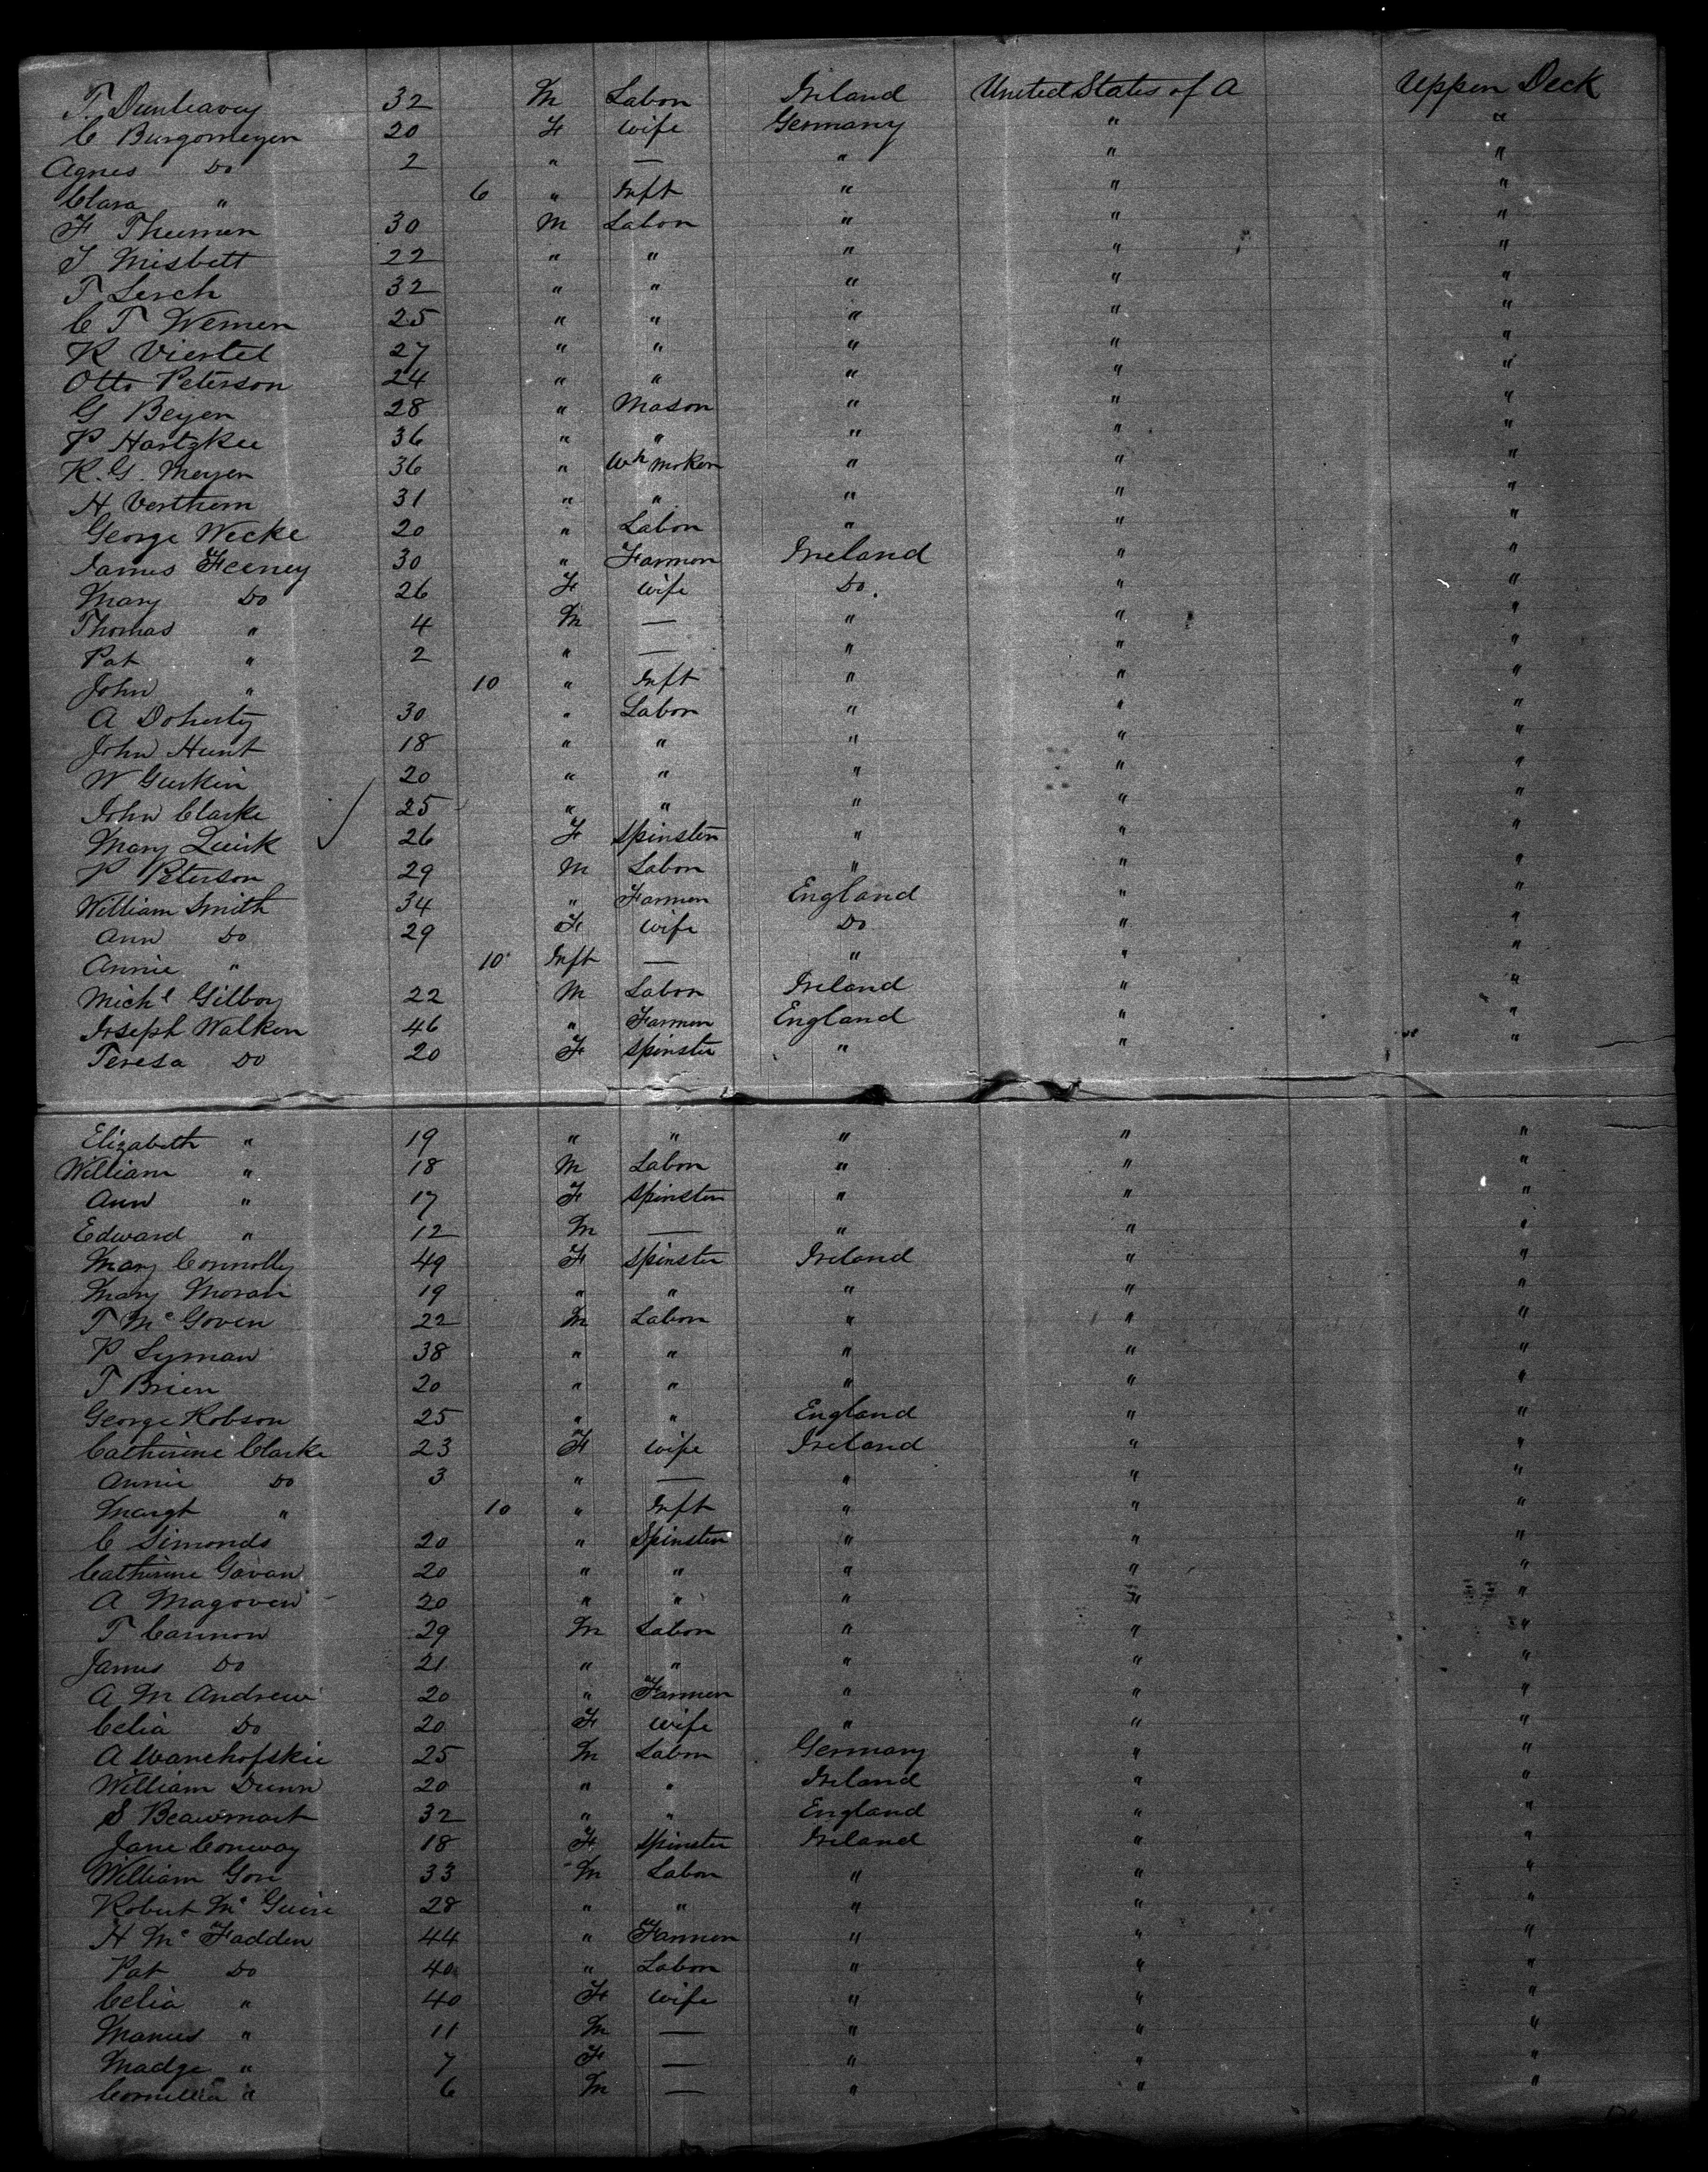 T. Dunleavey 32 M Labor Ireland United States of A Upper Deck
C Burgomeyer 20 F Wife Germany " "
Agnes Do 2 " — " " "
Clara " 6 " Inft " " "
F Thumen 30 M Labor " " "
T Nisbett 22 " " " " "
T Lerch 32 " " " " "
C T Werner 25 " " " " "
R Viertel 27 " " " " "
Otto Peterson 24 " " " " "
G Beyer 28 " Mason " " "
P Hartzkee 36 " " " " "
R. G. Meyer 36 " Wh Maker " " "
H Verthem 31 " " " " "
George Wecke 20 " Labor " " "
James Feeney 30 " Farmer Ireland " "
Mary Do 26 F Wife Do. " "
Thomas " 4 M — " " "
Pat " 2 " — " " "
John " 10 " Inft " " "
A Doherty 30 " Labor " " "
John Hunt 18 " " " " "
W Gurkin 20 " " " " "
John Clarke 25 " " " " "
Mary Quirk 26 F Spinster " " "
P Peterson 29 M Labor " " "
William Smith 34 " Farmer England " "
Ann Do 29 F Wife Do " "
Annie " 10 Inft — " " "
Michl Gilboy 22 M Labor Ireland " "
Joseph Walker 46 " Farmer England " "
Teresa Do 20 F Spinster " " "
Elizabeth " 19 " " " " "
William " 18 M Labor " " "
Ann " 17 F Spinster " " "
Edward " 12 M — " " "
Mary Connolly 49 F Spinster Ireland " "
Mary Moran 19 " " " " "
T Mc Goven 22 M Labor " " "
P Lyman 38 " " " " "
T Brien 20 " " " " "
George Robson 25 " " England " "
Catherine Clarke 23 F Wife Ireland " "
Annie Do 3 " — " " "
Margt " 10 " Inft " " "
C Simonds 20 " Spinster " " "
Catherine Gavan 20 " " " " "
A Magoven 20 " " " " "
T Cannon 29 M Labor " " "
James Do 21 " " " " "
A M Andrew 20 " Farmer " " "
Celia Do 20 F Wife " " "
A Wanchofskie 25 M Labor Germany " "
William Dunn 20 " " Ireland " "
S Beawmart 32 " " England " "
Jane Conway 18 F Spinster Ireland " "
William Gore 33 M Labor " " "
Robert Mc Guire 28 " " " " "
H Mc Fadden 44 " Farmer " " "
Pat Do 40 " Labor " " "
Celia " 40 F Wife " " "
Manus " 11 M — " " "
Madge " 7 F — " " "
Cornelia " 6 M — " " "